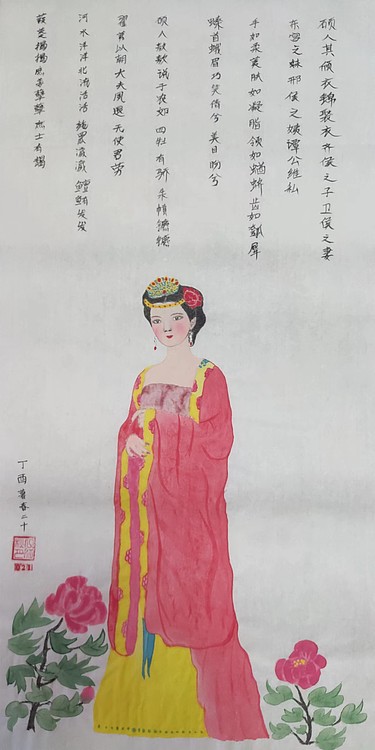 硕人其颀衣锦褧衣齐侯之子卫侯之妻
东宫之妹邢侯之姨谭公维私
手如柔荑肤如凝脂领如蝤蛴齿如瓠犀
螓首蛾眉巧笑倩兮美目盼兮
硕人敖敖说于农郊四牡有骄朱幩镳镳
翟茀以朝大夫夙退无使君劳
河水洋洋北流活活施罛濊濊鱣鲔发发
葭菼揭揭庶姜孽孽庶士有朅
丁酉暮春二十